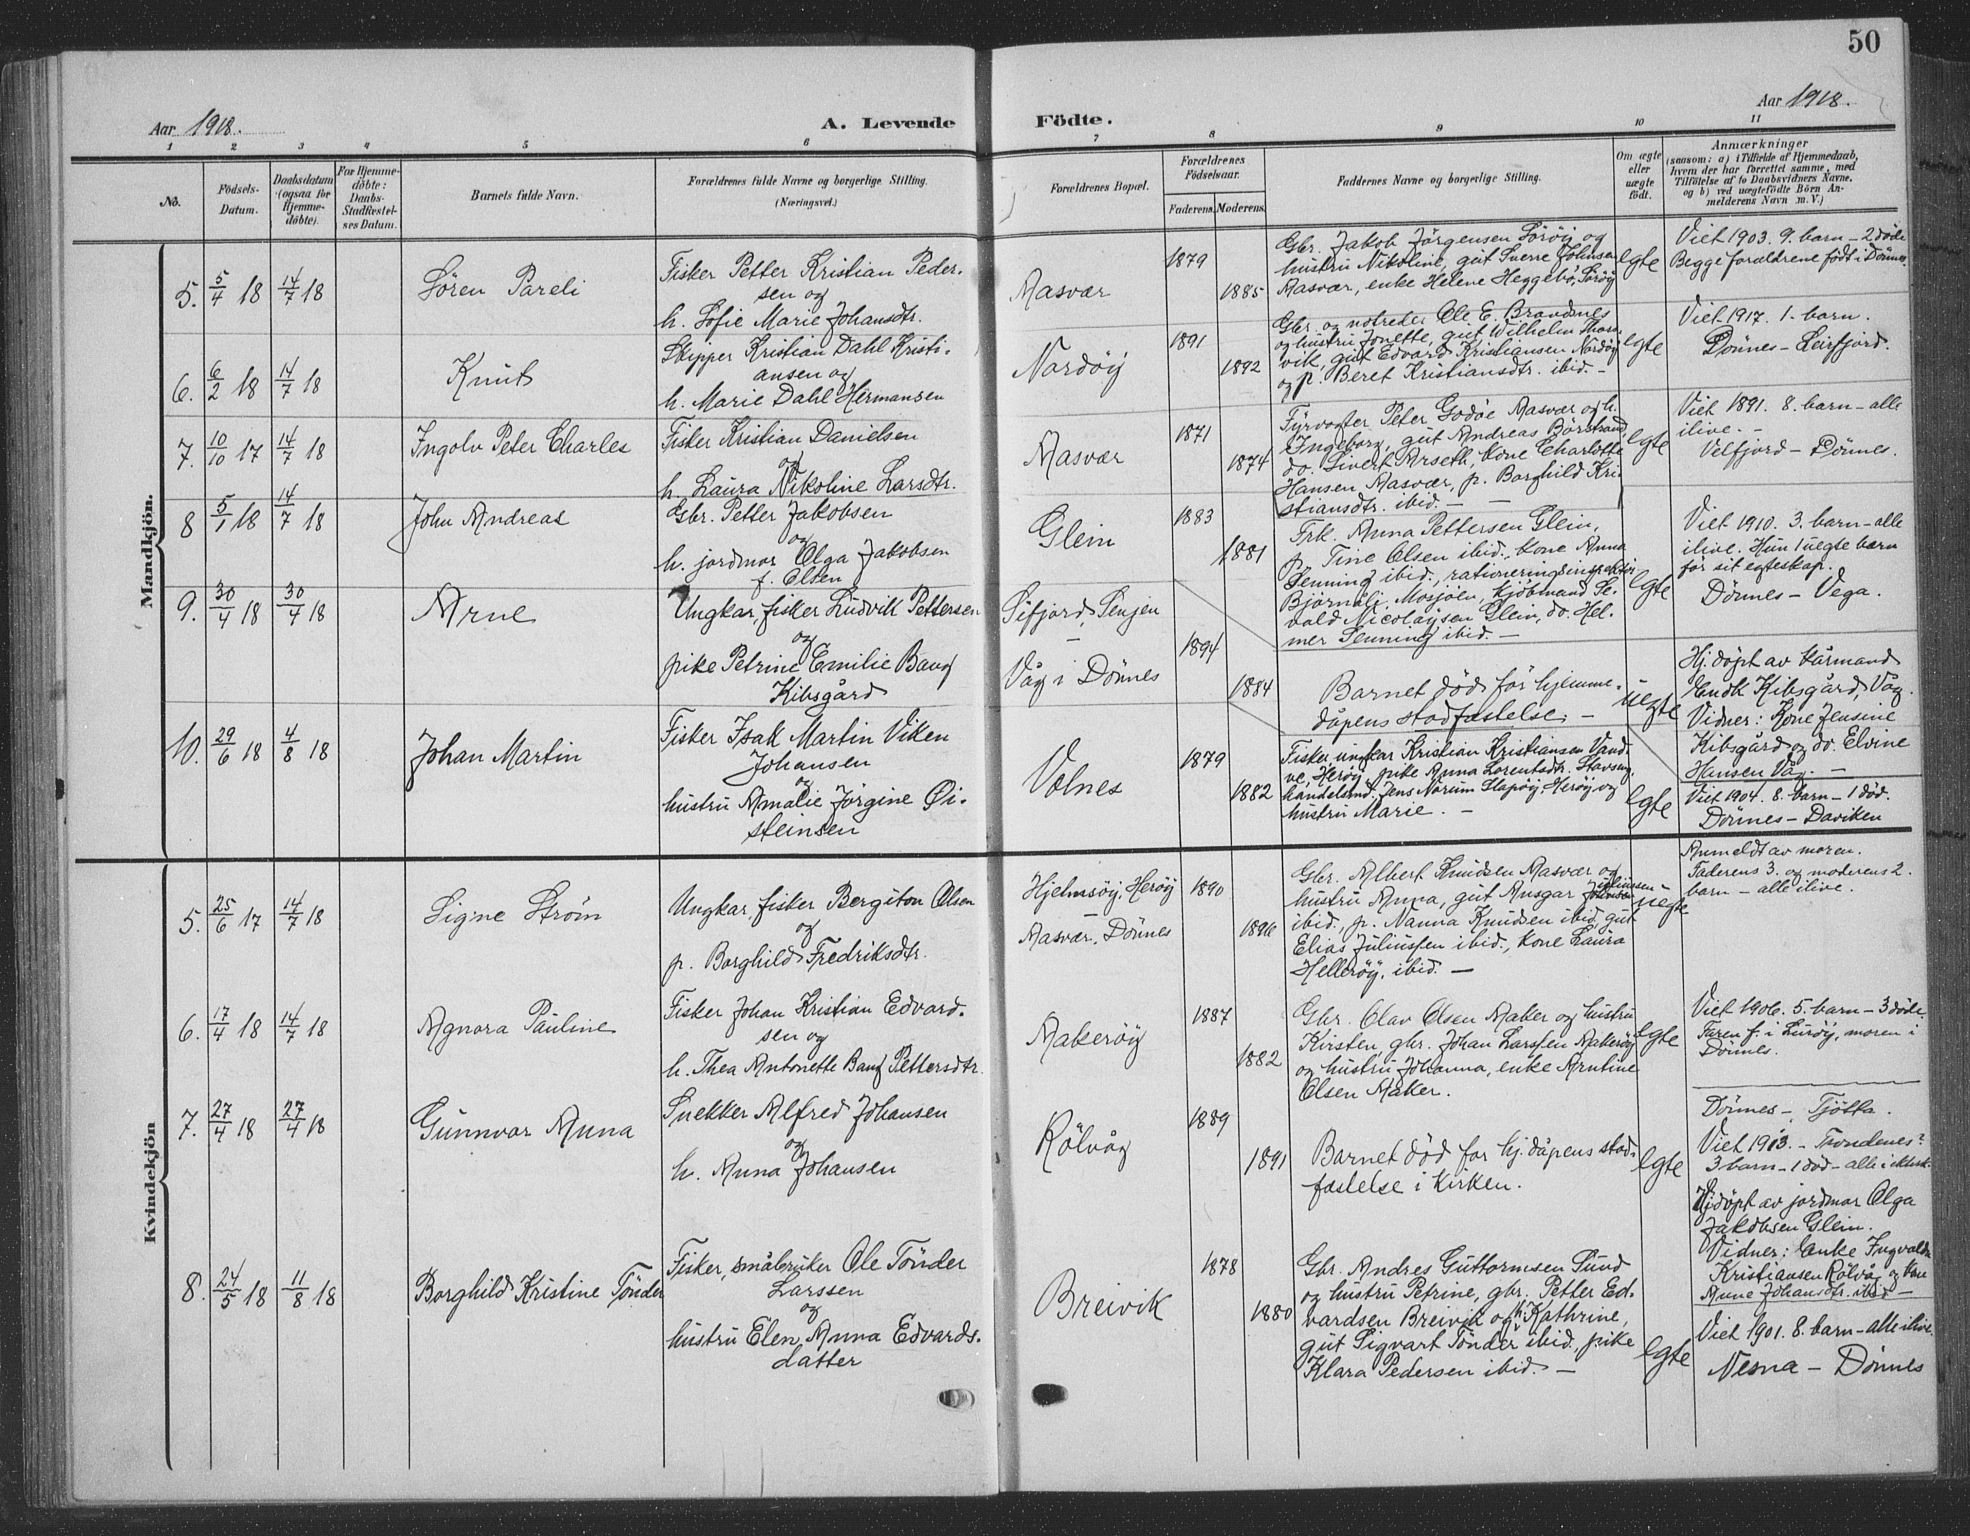 50
Aar 1918.
A. Levende
Födte.
Aar 1918.
1 2 3 4 5 6 7 8 9 10 11
No.
Födsels-
Datum.
Daabsdatum
(ogsaa for
Hjemme-
döbte).
For Hjemme-
döbte:
Daabs-
Stadfæstel-
ses Datum.
Barnets fulde Navn.
Forældrenes fulde Navne og borgerlige Stilling.
(Næringsvei.)
Forældrenes Bopæl.
Forældrenes
Födselsaar.
Faderens. Moderens.
Faddernes Navne og borgerlige Stilling.
Om ægte
eller
uægte
födt.
Anmærkninger
(saasom: a) i Tilfælde af Hjemmedaab,
hvem der har forrettet samme, med
Tilföielse af to Daabsvidners Navne,
og b) ved uægtefödte Börn An-
melderens Navn m. V.)
Mandkjön.
5. 5/4 18 14/7 18
Sören Pareli
Fisker Petter Kristian Peder-
sen og
h. Sofie Marie Johansdtr.
Aasvær
1879
1885
Gbr. Jakob Jörgensen Söröy og
hustru Nikoline, gut Sverre Johansen
Aasvær, enke Helene Heggebö, Söröy
egte
Viet 1903. 9. barn – 2 döde
Begge forældrene födt i Dönnes.
6. 6/2 18 14/7 18
Knut
Skipper Kristian Dahl Kristi-
ansen og
h. Marie Dahl Hermansen
Nordöy
1891
1892
Gbr. og notreder Ole E. Brandsnes
og hustru Jonette, gut Wilhelm Thors-
vik, gut Edvard Kristiansen Nordöy
og p. Beret Kristiansdtr. ibid. –
egte
Viet 1917. 1. barn.
Dönnes – Leirfjord.
7. 10/10 17 14/7 18
Ingolv Peter Charles
Fisker Kristian Danielsen
og
h. Laura Nikoline Larsdtr.
Aasvær
1871
1874
Fyrvogter Peter Godöe Aasvær og h.
Ingeborg, gut Andreas Börstrand,
do. Sivert Arseth, kone Charlotte
Hansen Aasvær, p. Borghild Kri-
stiansdtr. ibid. –
egte
Viet 1891. 8. barn – alle
ilive. –
Velfjord – Dönnes.
8 5/1 18 14/7 18
John Andreas
Gbr. Petter Jakobsen
og
h. jordmor Olga Jakobsen
f. Olsen
Glein
1883
1881
Frk. Anna Pettersen Glein,
p. Tine Olsen ibid., kone Anna
Senning ibid., rationeringsinspektör
Björnåli, Mosjöen, kjöbmand Se-
vald Nicolaysen Glein, do. Hel-
mer Senning ibid. –
egte
Viet 1910. 3. barn – alle
ilive. Hun 1 uegte barn
för sit egteskap.
Dönnes – Vega.
9. 30/4 18 30/4 18
Arne
Ungkar, fisker Ludvik Pettersen
og
pike Petrine Emilie Bang
Kibsgård
Sifjord, Senjen
–
Våg i Dönnes
1894
1884
Barnet död för hjemme-
dåpens stadfæstelse. –
uegte
Hj. döpt av kårmand
Endk Kibsgård, Våg.
Vidner: Kone Jensine
Kibsgård og do. Elvine
Hansen Våg. –
10. 29/6 18 4/8 18
Johan Martin
Fisker Isak Martin Viken
Johansen
og
hustru Amalie Jörgine Öi-
steinsen
Volnes
1879
1882
Fisker ungkar Kristian Kristiansen Vand-
ve, Heröy, pike Anna Lorentsdtr. Stavseng,
handelsmd. Jens Norum Slapöy Heröy og
hustru Marie. –
egte
Viet 1904. 8. barn – 1 död.
Dönnes – Daviken
Kvindekjön
5. 25/6 17 14/7 18
Signe Ström
Ungkar, fisker Bergiton Olsen
og
p. Borghild Fredriksdtr.
Hjelmsöy, Heröy
–
Aasvær, Dönnes
1890
1896
Gbr. Albert Knudsen Aasvær og
hustru Anna, gut Ansgar Juliussen
ibid., p. Nanna Knudsen ibid, gut
Elias Juliussen ibid., kone Laura
Helleröy, ibid. –
uegte
Anmeldt av moren.
Faderens 3. og moderens 2.
barn – alle ilive.
6. 17/4 18 14/7 18
Agnora Pauline
Fisker Johan Kristian Edvard-
sen og
h. Thea Antonette Bang Pettersdtr.
Aakeröy
1887
1882
Gbr. Olav Olsen Aaker og hustru
Kirsten, gbr. Johan Larssen Aakeröy
og hustru Johanna, enke Arntine
Olsen Aaker.
egte
Viet 1906. 5. barn – 3 döde.
Faren f. i Luröy, moren i
Dönnes.
7. 27/4 18 27/4 18
Gunnvor Anna
Snekker Alfred Johansen
og
h. Anna Johansen
Rölvåg
1889
1891
Barnet död för hj.dåpens stad-
fæstelse i kirken.
egte
Dönnes – Tjötta.
Viet 1913. – Trondenes?
3 barn – 1 död – alle i ektesk.
Hjdöpt av jordmor Olga
Jakobsen Glein.
Vidner: Enke Ingvalda
Kristiansen Rölvåg og kone
Anne Johansdtr. ibid –
8. 24/5 18 11/8 18
Borghild Kristine Tönder
Fisker, småbruker Ole Tönder
Larssen
og
hustru Elen Anna Edvards-
datter
Breivik
1878
1880
Gbr. Andres Guttormsen Sund
og hustru Petrine, gbr. Petter Ed-
vardsen Breivik og h. Kathrine,
gut Sigvart Tönder ibid., pike
Klara Pedersen ibid. –
egte
Viet 1901. 8. barn – alle ilive.
Nesna – Dönnes